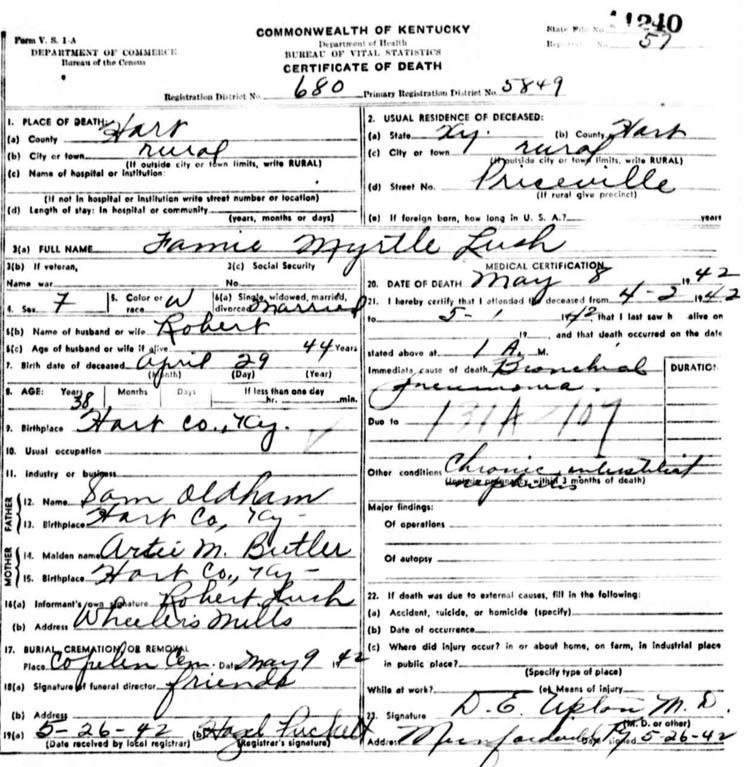 Form V. S. 1-A
DEPARTMENT OF COMMERCE
Bureau of the Census
COMMONWEALTH OF KENTUCKY
Department of Health
BUREAU OF VITAL STATISTICS
CERTIFICATE OF DEATH
State File No. 11240
57
Registration District No. 680 Primary Registration District No. 5849
1. PLACE OF DEATH:
(a) County Hart
(b) City or town rural
(If outside city or town limits, write RURAL)
(c) Name of hospital or institution:
(If not in hospital or institution write street number or location)
(d) Length of stay: In hospital or community
(years, months or days)
2. USUAL RESIDENCE OF DECEASED:
(a) State Ky. (b) County Hart
(c) City or town rural
(If outside city or town limits, write RURAL)
(d) Street No. Priceville
(If rural give precinct)
(e) If foreign born, how long in U. S. A.? years
3(a) FULL NAME Fannie Myrtle Lush
3(b) If veteran,
Name war
3(c) Social Security
No.
4. Sex F
5. Color or race W
6(a) Single, widowed, married, divorced Married
6(b) Name of husband or wife Robert
6(c) Age of husband or wife if alive 44 Years
7. Birth date of deceased April 29
(Month) (Day) (Year)
8. AGE: Years 38 Months Days If less than one day
hr. min.
9. Birthplace Hart Co., Ky.
10. Usual occupation
11. Industry or business
FATHER
12. Name Sam Oldham
13. Birthplace Hart Co, Ky-
MOTHER
14. Maiden name Artie M. Butler
15. Birthplace Hart Co., Ky-
16(a) Informant's own signature Robert Lush
(b) Address Wheelers Mills
17. BURIAL, CREMATION OR REMOVAL
Place Copelin Cem. Date May 9 1942
18(a) Signature of funeral director friends
(b) Address
19(a) 5-26-42 (b) Hazel Puckett
(Date received by local registrar) (Registrar's signature)
MEDICAL CERTIFICATION
20. DATE OF DEATH May 8 1942
21. I hereby certify that I attended the deceased from 4-2 1942
to 5-1 1942, that I last saw h alive on
19 , and that death occurred on the date
stated above at 1 A. M.
Immediate cause of death Bronchial
pneumonia.
DURATION
Due to 131A-107
Other conditions Chronic interstitial
nephritis
(Include pregnancy within 3 months of death)
Major findings:
Of operations
Of autopsy
22. If death was due to external causes, fill in the following:
(a) Accident, suicide, or homicide (specify)
(b) Date of occurrence
(c) Where did injury occur? in or about home, on farm, in industrial place
in public place?
(Specify type of place)
While at work? (e) Means of injury
23. Signature D. E. Upton M. D.
(M. D. or other)
Address Munfordville Ky Date signed 5-26-42